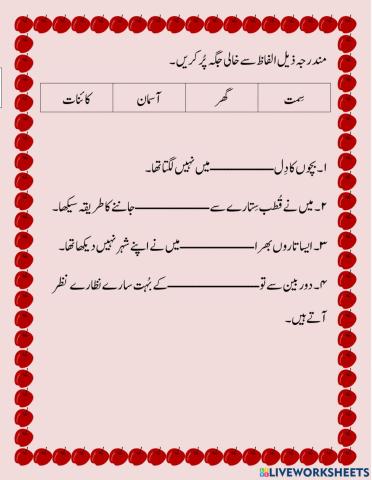 مندرجہ ذیل الفاظ سے خالی جگہ پُر کریں۔
سِمت گھر آسمان کائنات
۱۔ بچوں کا دِل ـــــــــــــ میں نہیں لگتا تھا۔
۲۔ میں نے قُطب سِتارے سے ـــــــــــــ جاننے کا طریقہ سیکھا۔
۳۔ ایسا تاروں بھرا ـــــــــــــ میں نے اپنے شہر نہیں دیکھا تھا۔
۴۔ دوربین سے تو ـــــــــــــ کے بہُت سارے نظارے نظر
آتے ہیں۔
LIVEWORKSHEETS